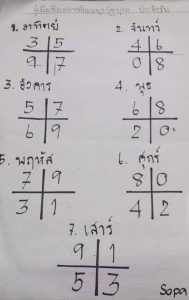 1. อาทิตย์
2. จันทร์
3 5
4 6
9 7
0 8
3. อังคาร
4. พุธ
5 7
6 8
6 9
2 0
5. พฤหัส
6. ศุกร์
7 9
8 0
3 1
4 2
7. เสาร์
9 1
5 3
Sopa